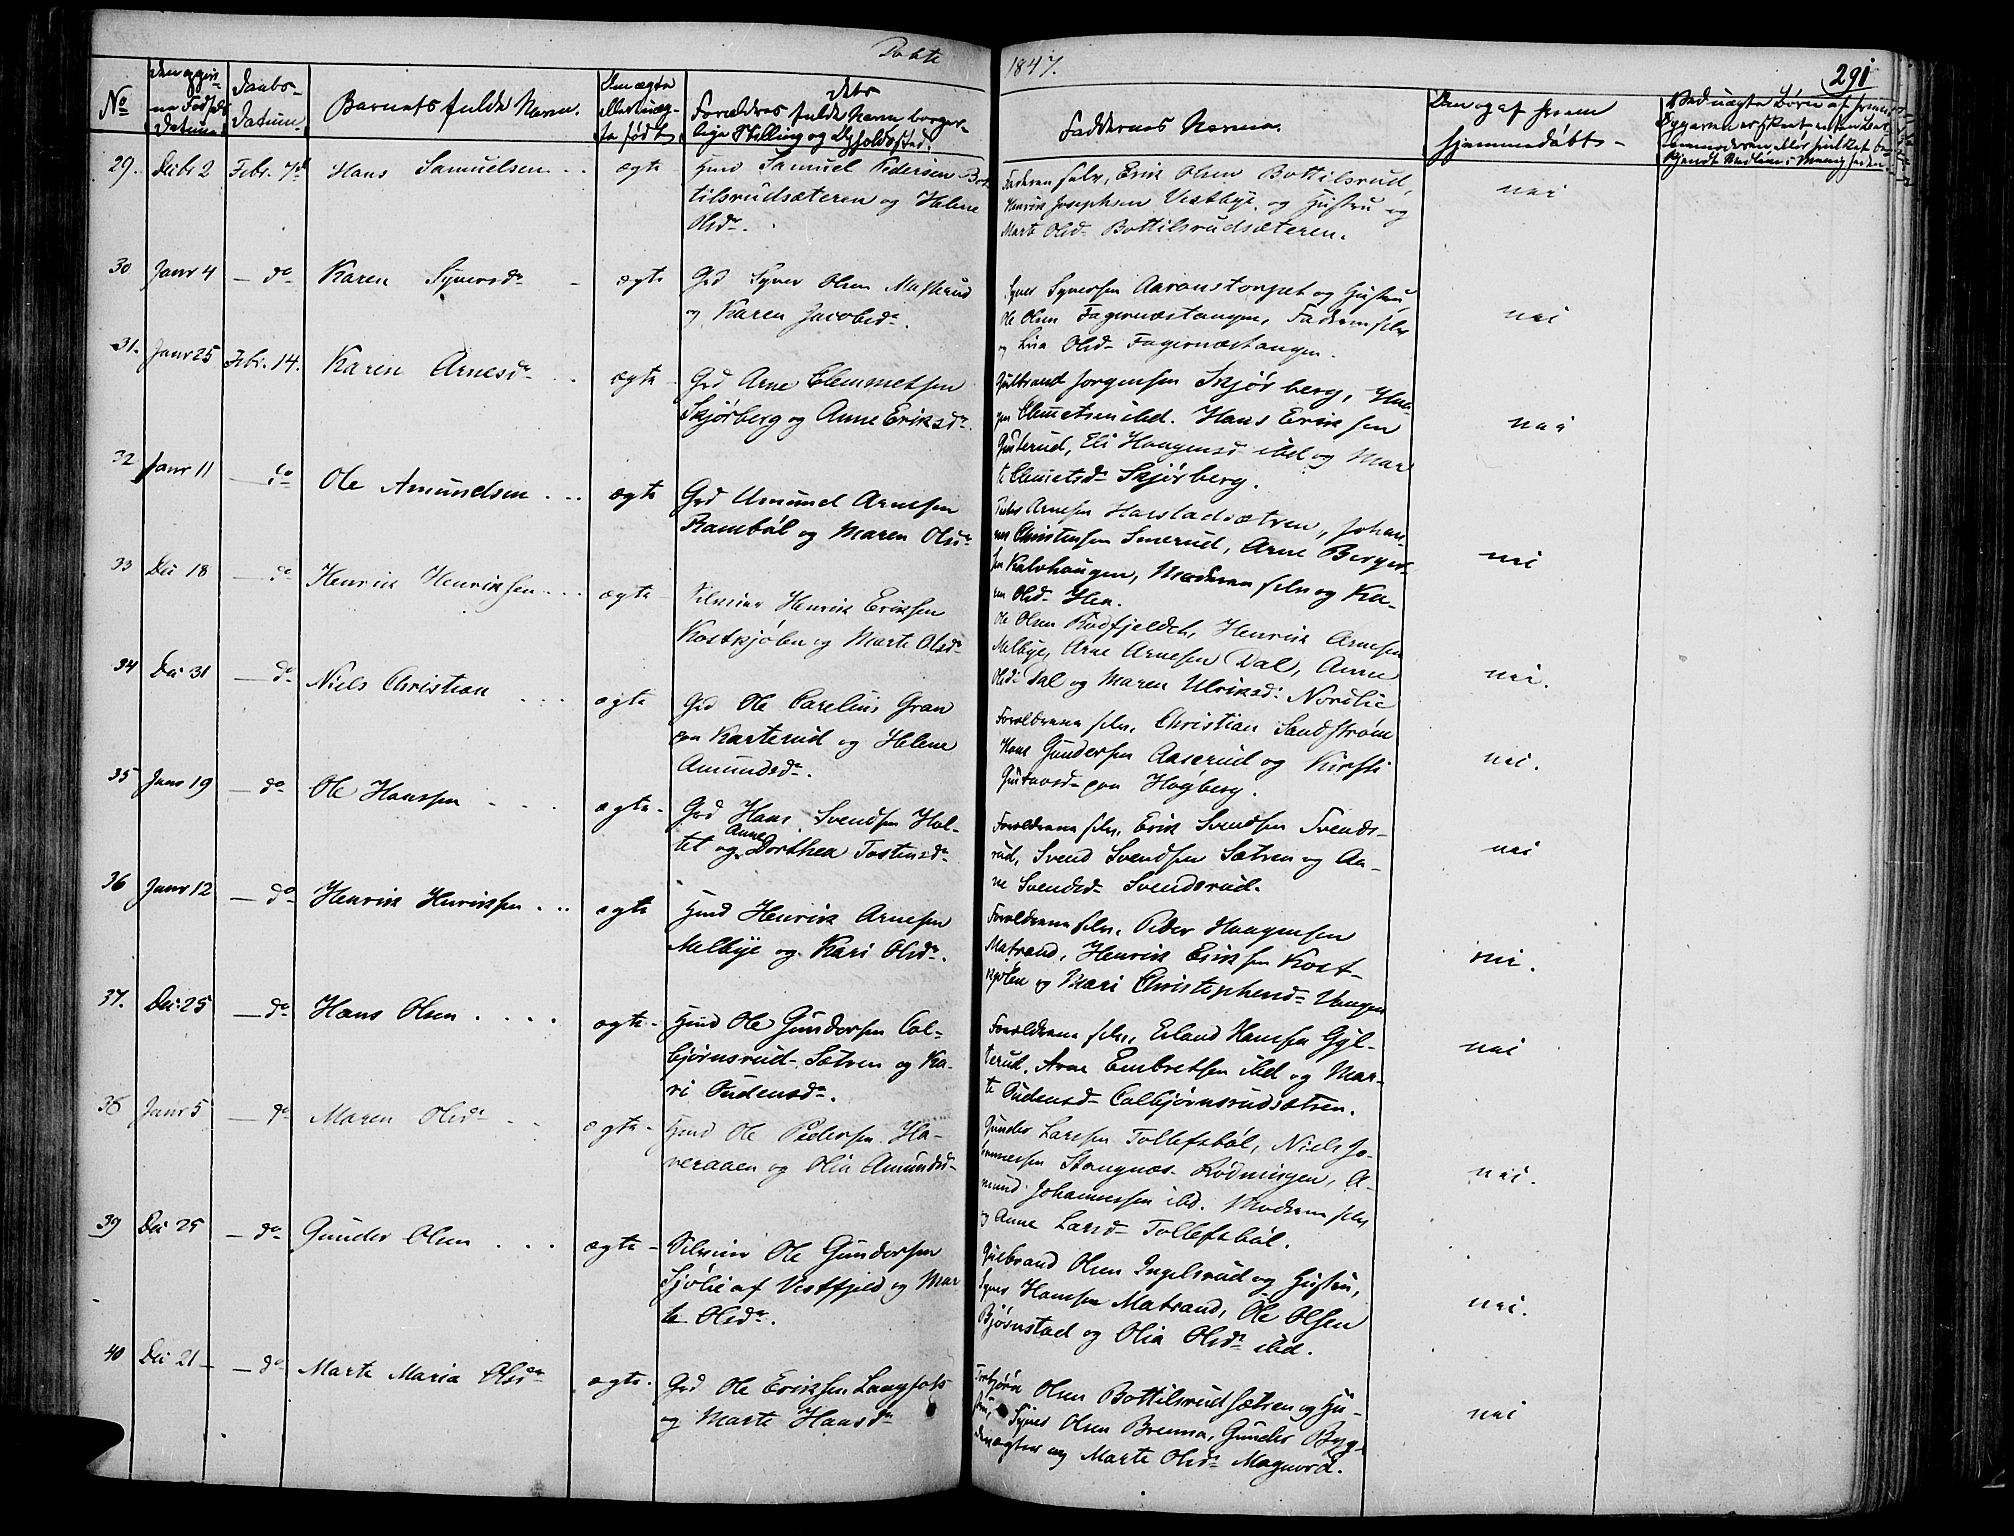 Døbte 1847. 291
No
Datum
Daabs-
Datum
Barnets fulde Navn.
Om ægte
eller uæg-
te født
Forældres fulde Navn borger-
lige Stilling og Opholdssted.
Faddernes Navne.
hjemmedøbt
29. Debr 2 Febr. 7d Hans Samuelsen ægte Hmd Samuel Pedersen Bot
tilsrudsæteren og Helene
Olsdr.
Faderen selv, Erik Olsen Bottilsrud,
Henrik Josephsen Vestbye, og Hustru og
Marte Olsdr Bottilsrudsæteren.
nei
30 Janr 4 — do Karen Syversdr ægte Grd Syver Olsen Masterud
og Karen Jacobsdr.
Syver Syversen Aaranstorpet og Hustru
Ole Olsen Fagernæstangen, Faderen selv
og Lisa Olsdr Fagernæstangen.
nei
31. Janr 25 Febr. 14. Karen Arnesdr ægte Grd Arne Clemmetsen
Skjørberg og Anne Eriksdr.
Gulbrand Jorgensen Skjørberg, Haa-
gen Clemetsen ibd. Hans Eriksen
Gusterud, Eli Haagensd ibd og Mar
te Clemetsdr Skjørberg.
nei
32 Janr 11 — do Ole Amundsen ægte Grd Amund Arnesen
Rambøl og Maren Olsdr
Peder Arnesen Harstadsætren, Johan-
nes Christensen Smerud, Arne Berger-
sen Kalvhaugen, Moderen selv og Ka-
ren Olsdr Hea.
nei
33 Dec 18 — do Henrik Henriksen ægte Selveier Henrik Eriksen
Kostkjølen og Marte Olsdr
Ole Olsen Rødfjeldet, Henrik Arnesen
Melbye, Arne Arnesen Dal, Anne
Olsdr Dal og Maren Ulriksdr Nordlie
nei.
34 Dec 31 — do Niels Christian ægte Grd Ole Carelius Gran
paa Karterud og Helene
Amundsdr.
Forældrene selv, Christian Sandstrøm
Hans Gundersen Aaserud og Kirsti
Gustavsdr paa Høgberg.
nei.
35 Janr 19 — do Ole Hanssen ægte Grd Hans Svendsen Hol-
tet og Anne Dorthea Tostensdr
Forældrene selv, Erik Svendsen Svends-
rud, Svend Svendsen Sætren og An-
ne Svendsdr Svendsrud.
nei
36 Janr 12 — do Henrik Henriksen ægte Hmd Henrik Arnesen
Melbye og Kari Olsdr.
Forældrene selv, Peder Haagensen
Matrand, Henrik Eriksen Kost-
kjølen og Mari Christophersdr Vangen
nei.
37. Dec: 25 — do Hans Olsen ægte Hmd Ole Gundersen Col-
bjørnsrud-Sætren og Ka-
ri Oudensdr.
Forældrene selv, Erland Hansen Gyl-
terud, Arne Embretsen ibd og Mar-
te Oudensdr Colbjørnsrudsætren.
nei
38 Janr 5 — do Maren Olsdr ægte Hmd Ole Pedersen Ha-
veraaen og Olia Amundsd
Gunder Larsen Tollefsbøl, Niels Jo-
hannessen Stangnæs-Rødningen, A-
mund Johannessen ibd. Moderen selv
og Anne Larsdr Tollefsbøl.
nei.
39 Dec 25 — do Gunder Olsen ægte Selveier Ole Gundersen
Sjølie af Vestfjeld og Mar
te Olsdr.
Gulbrand Olsen Ingelsrud og Hustru,
Syver Hansen Matrand, Ole Olsen
Bjørnstad og Olia Olsdr ibd.
nei.
40 Dec 21 — do Marte Maria Olsdr ægte Grd Ole Eriksen Langfos
og Marte Hansdr
Torbjørn Olsen Bottilsrudsætren og Hu-
stru, Syver Olsen Brenna, Gunder Byg-
dersægter og Marte Olsdr Magnord.
nei